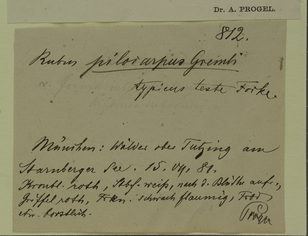 Dr. A. PROGEL.
812.
Rubus pilocarpus Gremli
typicus teste Focke.
München: Wälder ober Tutzing am
Starnberger See. 15. 81.
roth, weiß, nach d. Blüthe auf-,
Griffel roth, Frkn. schwach flaumig,
borstlich. Progel